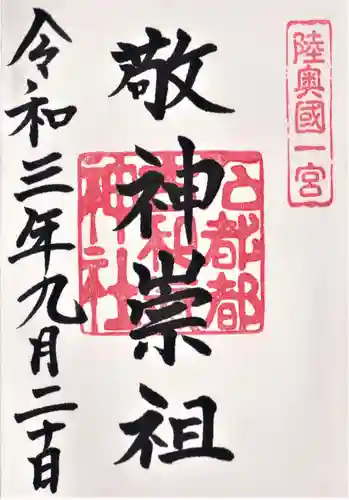 陸奥國一宮
敬神崇祖
石都都
古和氣
神社
令和三年九月二十日